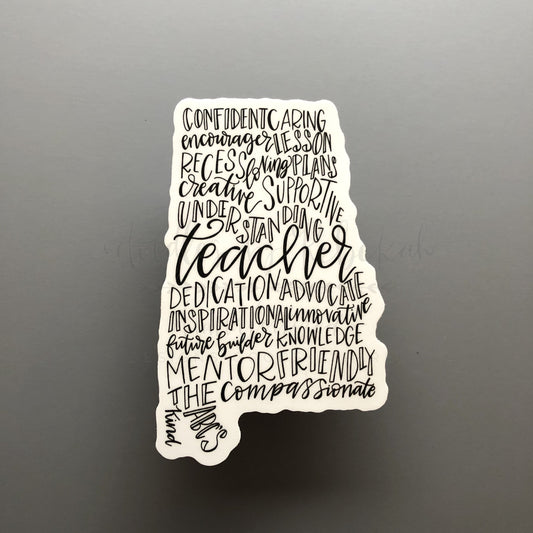 CONFIDENT CARING
encourager LESSON
RECESS loving PLANS
creative SUPPORTIVE
UNDERSTANDING
teacher
DEDICATION ADVOCATE
INSPIRATIONAL innovative
future builder KNOWLEDGE
MENTOR FRIENDLY
THE compassionate
ABC'S
kind